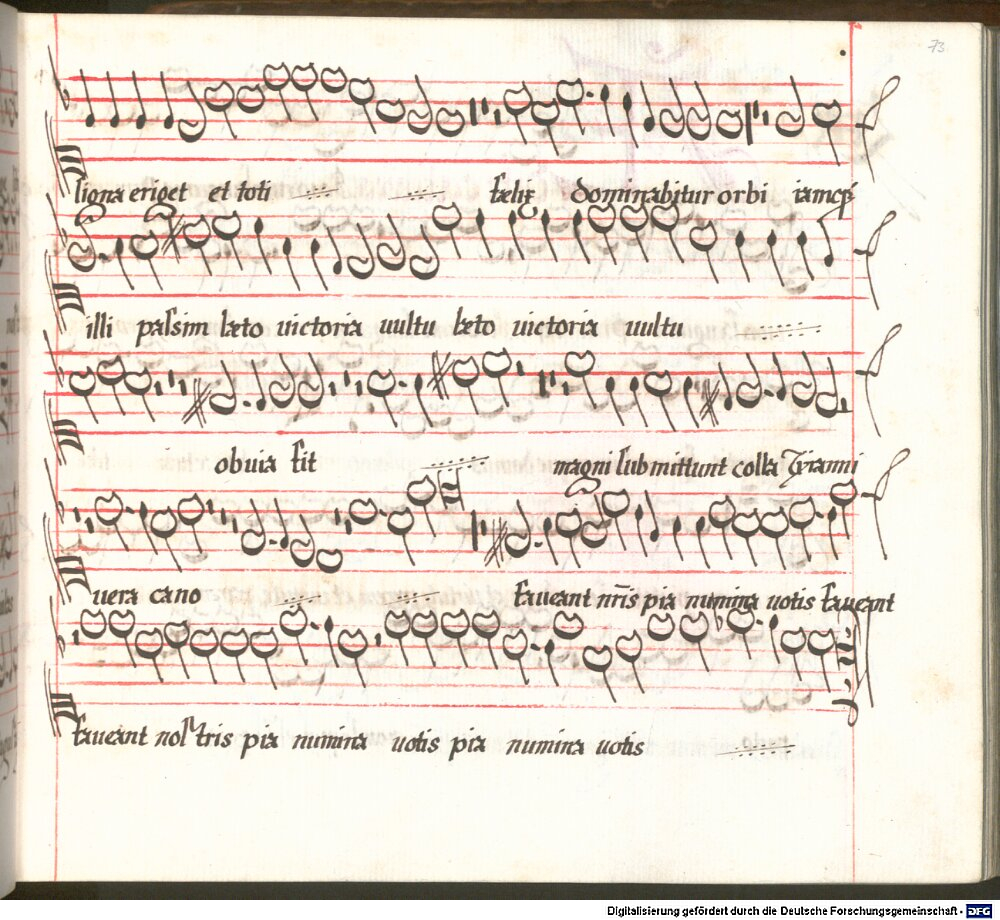 73
signa eriget et toti fælix dominabitur orbi iamq́
illi passim læto victoria vultu læto victoria vultu
obvia sit magni submittunt colla Tyranni
vera cano faveant nr̄is pia numina votis faveant
faveant nostris pia numina votis pia numina votis
Digitalisierung gefördert durch die Deutsche Forschungsgemeinschaft - DFG